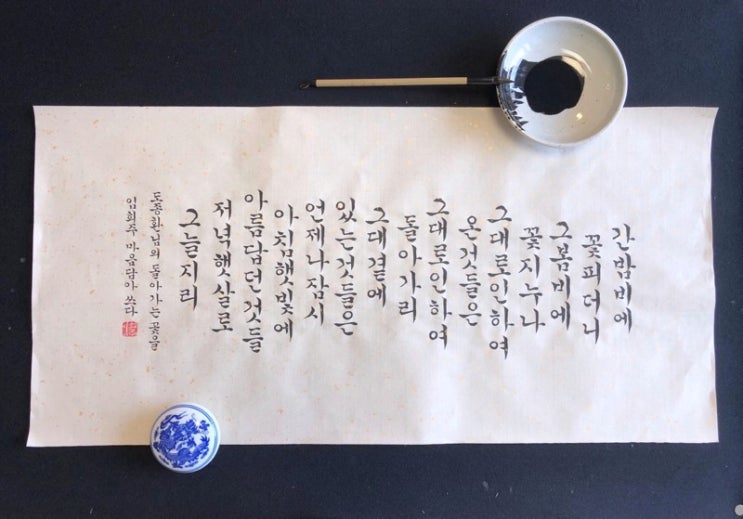 간밤비에
꽃피더니
그봄비에
꽃지누나
그대로인하여
온것들은
그대로인하여
돌아가리
그대곁에
있는것들은
언제나잠시
아침햇빛에
아름답던것들
저녁햇살로
그늘지리
도종환님의 돌아가는 꽃을
임희주 마음담아 쓰다